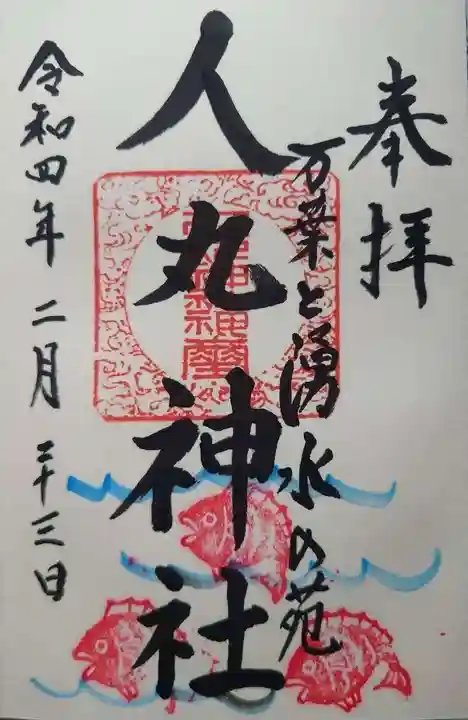 奉拝
万葉と湧水の苑
人丸神社
令和四年二月二十三日